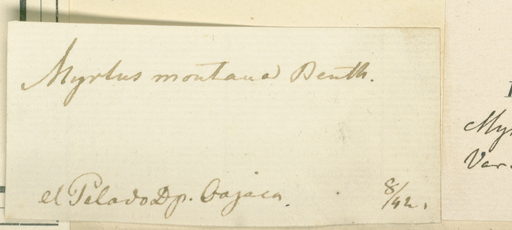 Myrtus montana Benth.
el Pelado Dp. Oajaca.
8/42.
Myr
Var.